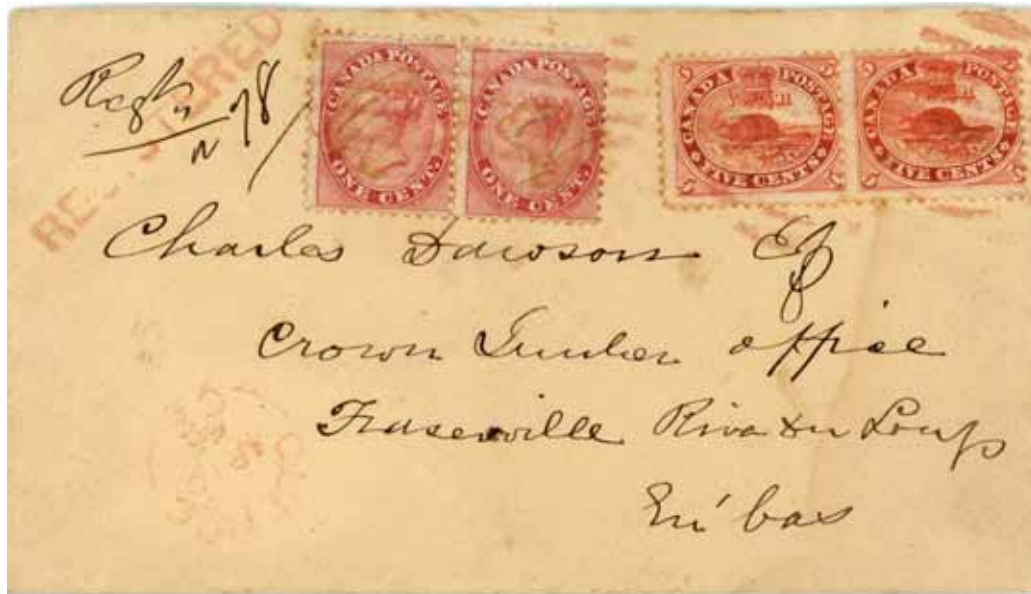 REGISTERED
Reg'd
N 78
CANADA POSTAGE
ONE CENT.
CANADA POSTAGE
ONE CENT.
5 CANADA POSTAGE 5
5 FIVE CENTS 5
5 CANADA POSTAGE 5
5 FIVE CENTS 5
Charles Dawson Esq
Crown Timber office
Fraserville Riva du Loup
En bas